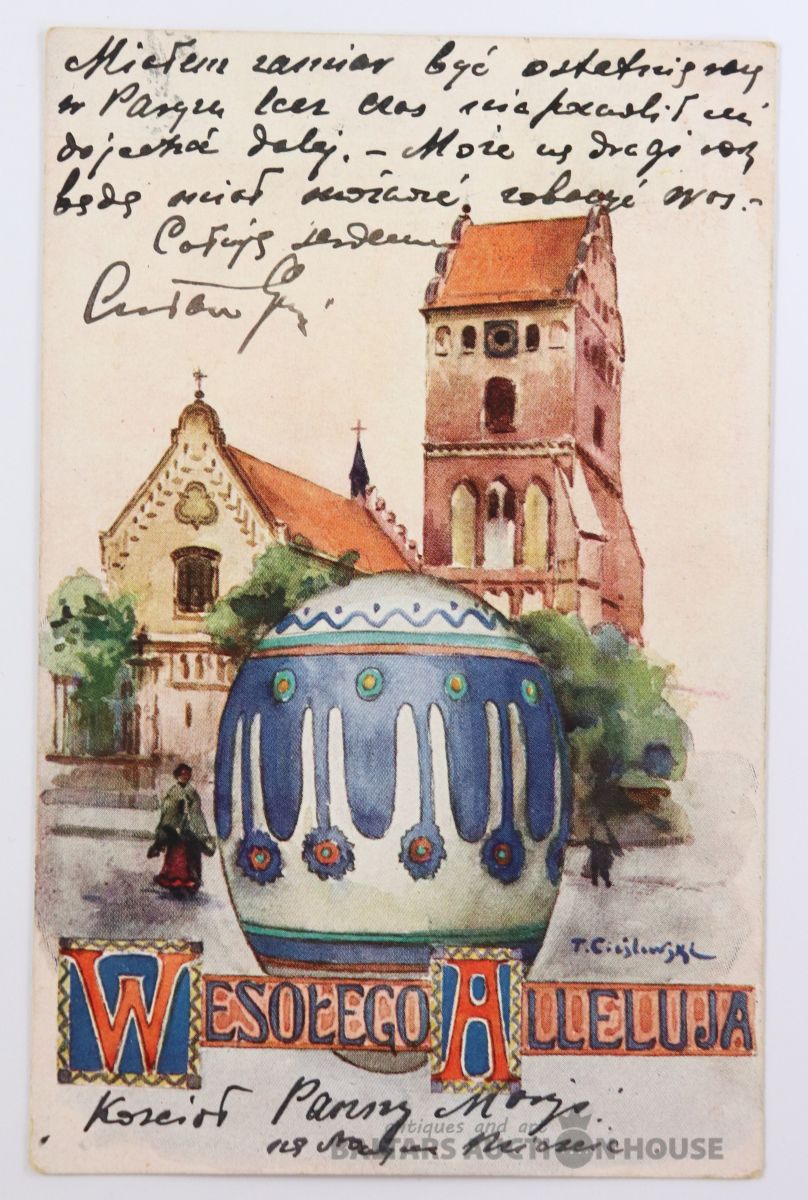 Miałem zamiar być ostatnią razą
w Paryżu lecz czas nie pozwolił mi
dojechać dalej. – Może na drugi rok
będę miał możność zobaczyć Was.–
Całuję serdecznie
Gustaw
T. Cieślewski
WESOŁEGO ALLELUJA
Kościół Panny Maryi
na Nowym Mieście
antiques and art
BALTARS AUCTION HOUSE